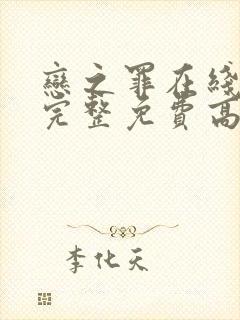 戀之罪在綫
完整免費高
李化天